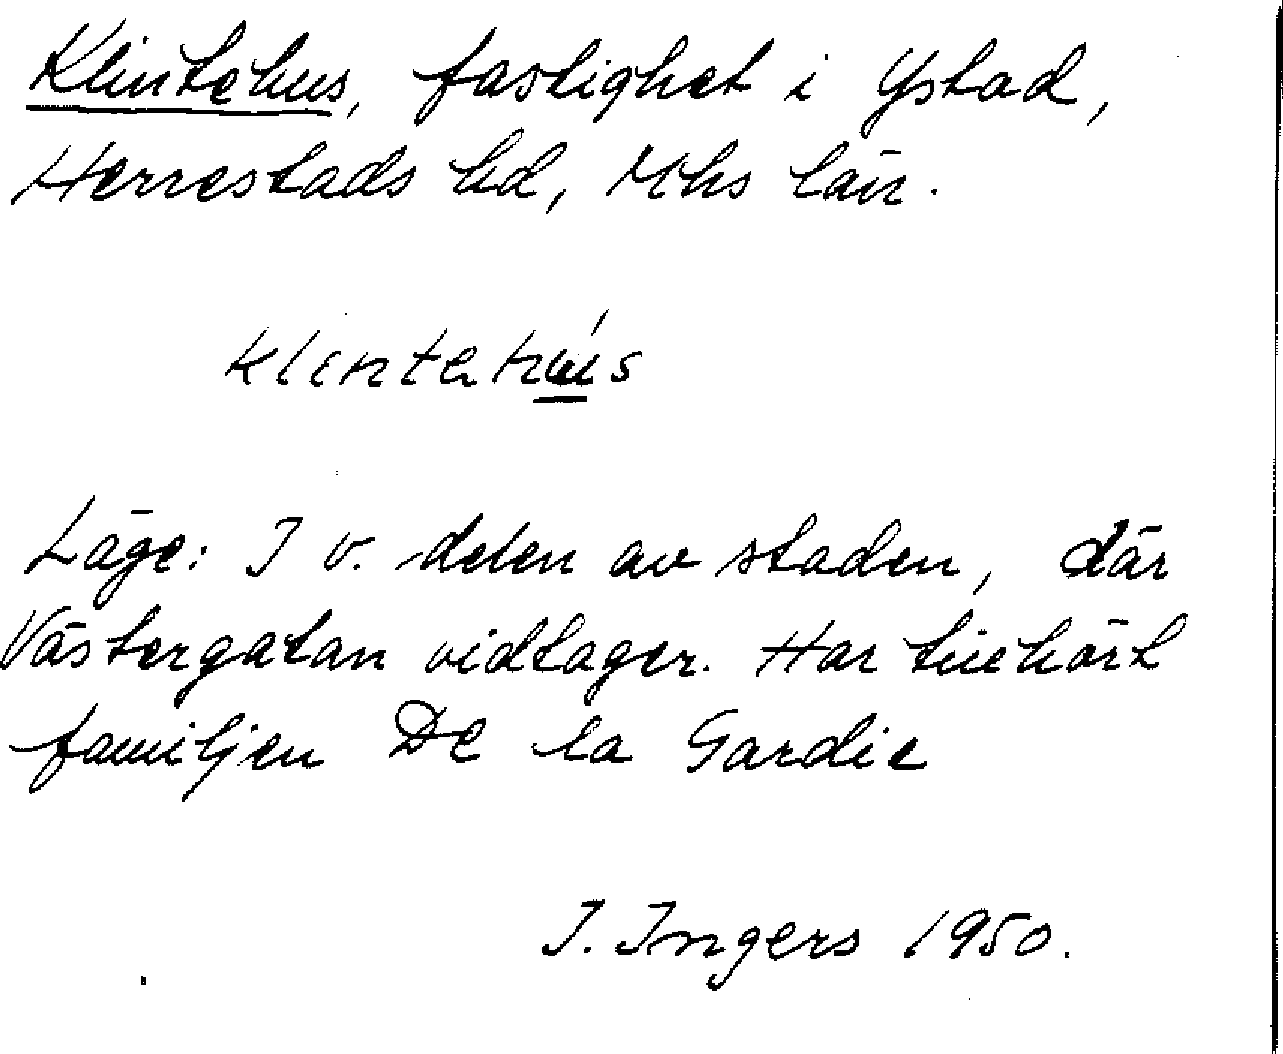 Klintehus, fastighet i Ystad,
Herrestads hd, Mhs län.
Läge: I v. delen av staden, där
Västergatan vidtager. Har tillhört
familjen De la Gardie
I. Ingers 1950.